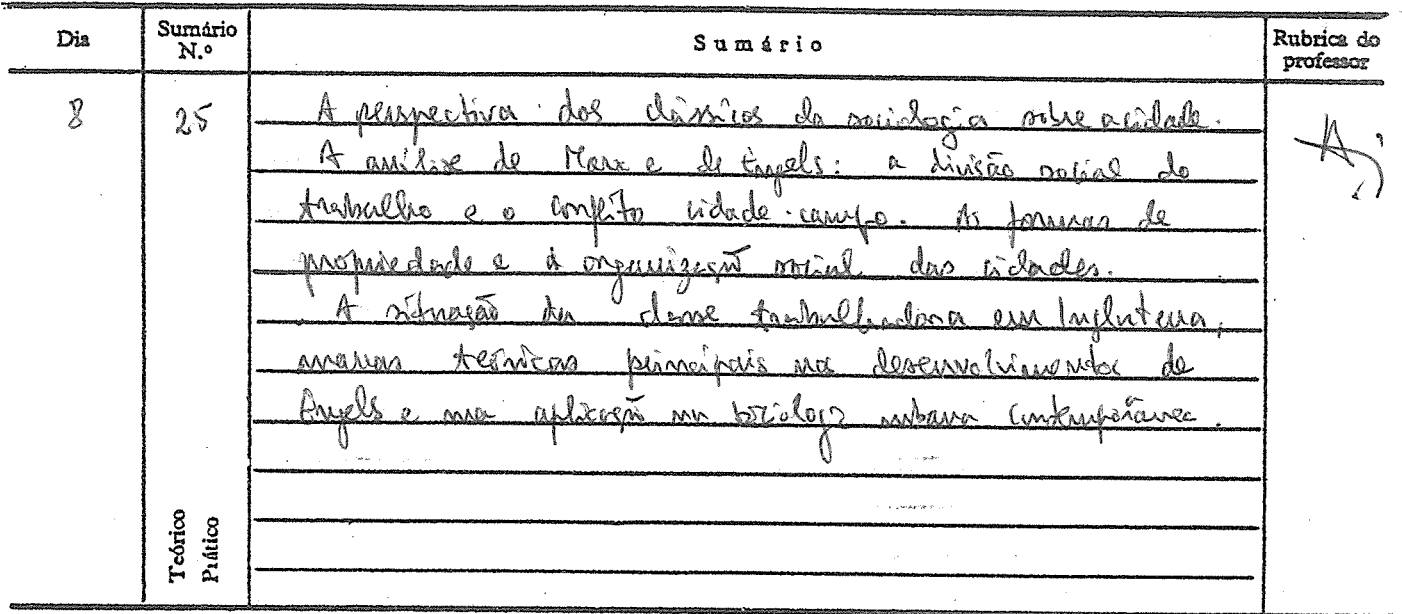 Dia Sumário N.º Sumário Rubrica do professor
8 25 A perspectiva dos clássicos da sociologia sobre a cidade.
A análise de Marx e de Engels: a divisão social do
trabalho e o conflito cidade-campo. As formas de
propriedade e a organização social das cidades.
A situação da classe trabalhadora em Inglaterra;
teóricas principais nos desenvolvimentos de
Engels e sua aplicação na sociologia urbana contemporânea.
Teórico
Prático